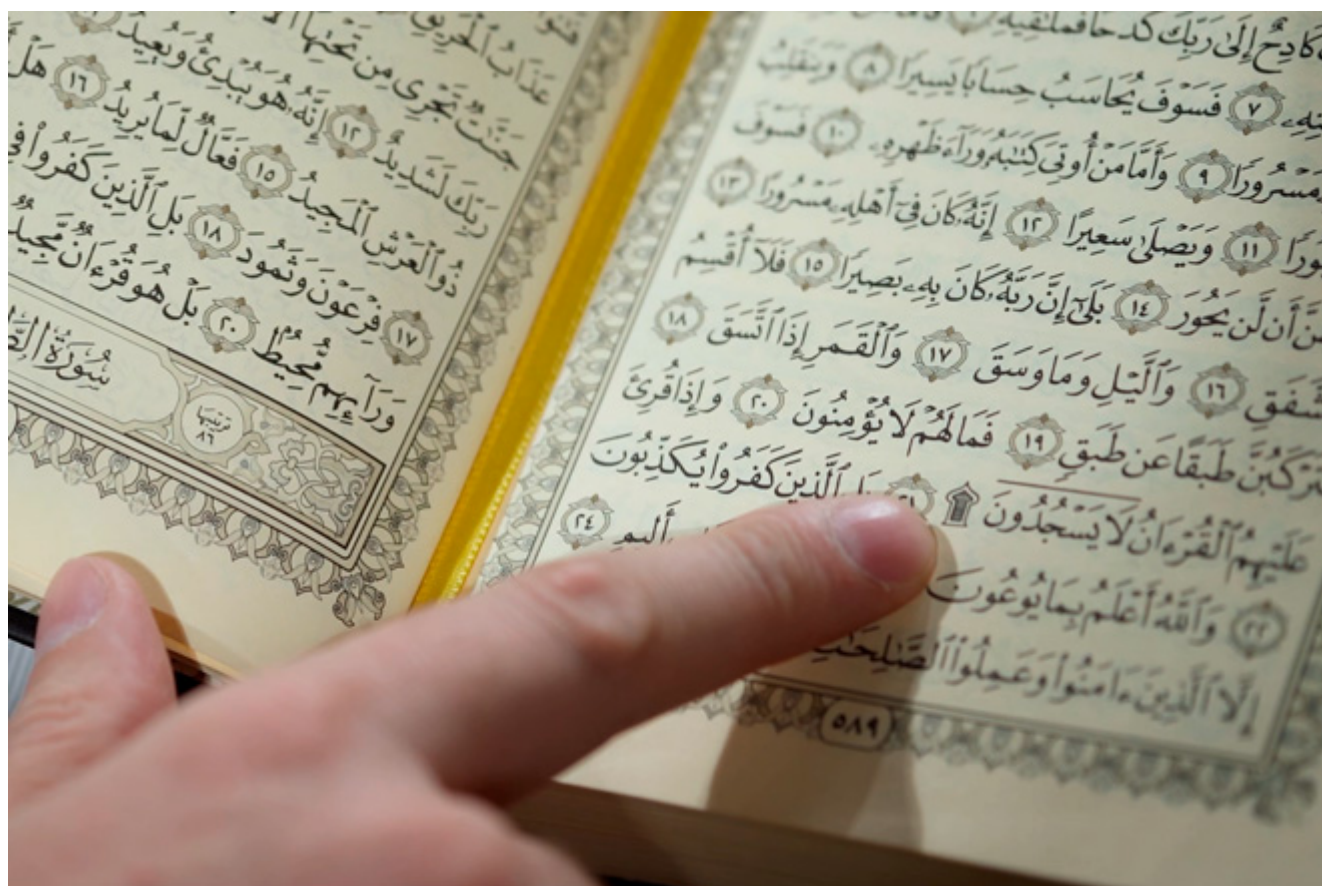 كَادِحٌ إِلَىٰ رَبِّكَ كَدْحًا فَمُلَٰقِيهِ
٧ فَسَوْفَ يُحَاسَبُ حِسَابًا يَسِيرًا ٨ وَيَنقَلِبُ
مَسْرُورًا ٩ وَأَمَّا مَنْ أُوتِىَ كِتَٰبَهُۥ وَرَآءَ ظَهْرِهِۦ ١٠ فَسَوْفَ
١١ وَيَصْلَىٰ سَعِيرًا ١٢ إِنَّهُۥ كَانَ فِىٓ أَهْلِهِۦ مَسْرُورًا ١٣
أَن لَّن يَحُورَ ١٤ بَلَىٰٓ إِنَّ رَبَّهُۥ كَانَ بِهِۦ بَصِيرًا ١٥ فَلَآ أُقْسِمُ
١٦ وَٱلَّيْلِ وَمَا وَسَقَ ١٧ وَٱلْقَمَرِ إِذَا ٱتَّسَقَ ١٨
طَبَقًا عَن طَبَقٍ ١٩ فَمَا لَهُمْ لَا يُؤْمِنُونَ ٢٠ وَإِذَا قُرِئَ
عَلَيْهِمُ ٱلْقُرْءَانُ لَا يَسْجُدُونَ ۩ ٢١ ٱلَّذِينَ كَفَرُوا۟ يُكَذِّبُونَ
٢٢ وَٱللَّهُ أَعْلَمُ بِمَا يُوعُونَ أَلِيمٍ ٢٤
إِلَّا ٱلَّذِينَ ءَامَنُوا۟ وَعَمِلُوا۟ ٱلصَّٰلِحَٰتِ
٥٨٩
عَذَابُ ٱلْحَرِيقِ
جَنَّٰتٌ تَجْرِى مِن تَحْتِهَا
رَبِّكَ لَشَدِيدٌ ١٢ إِنَّهُۥ هُوَ يُبْدِئُ وَيُعِيدُ
ذُو ٱلْعَرْشِ ٱلْمَجِيدُ ١٥ فَعَّالٌ لِّمَا يُرِيدُ ١٦ هَلْ
١٧ فِرْعَوْنَ وَثَمُودَ ١٨ بَلِ ٱلَّذِينَ كَفَرُوا۟ فِى
وَرَآئِهِم مُّحِيطٌۢ ٢٠ بَلْ هُوَ قُرْءَانٌ مَّجِيدٌ
سُورَةُ
ترتيبها ٨٦